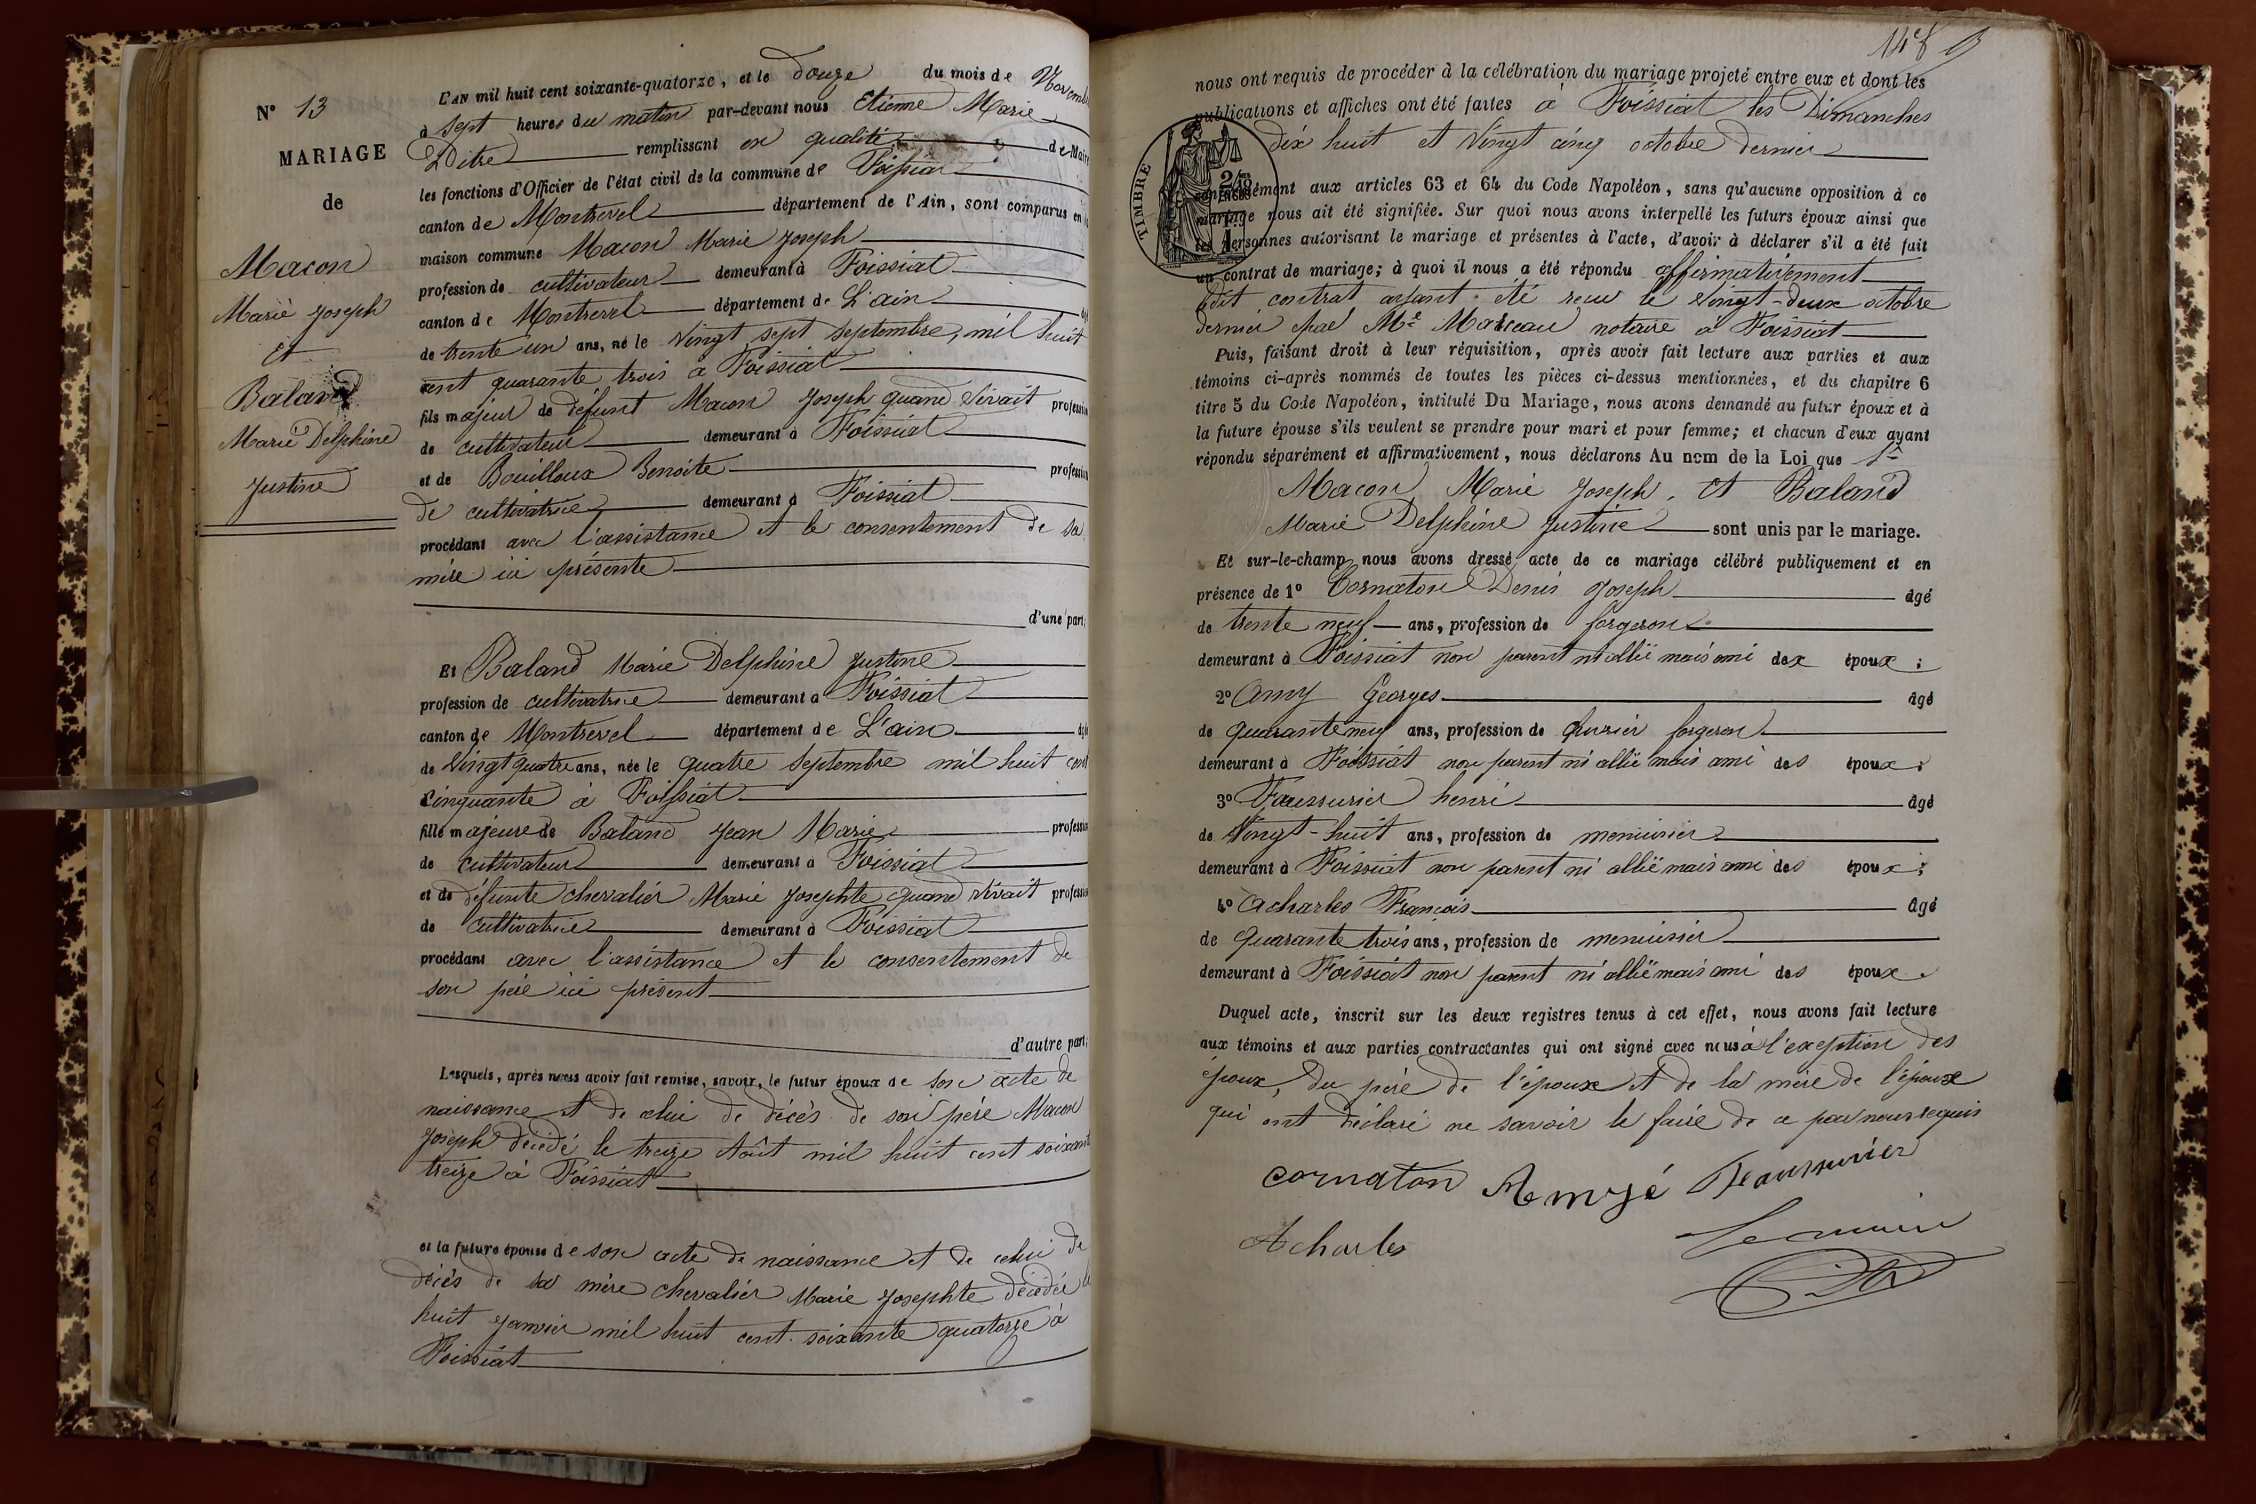 N° 13
MARIAGE
de
Macon
Marie Joseph
Et
Baland
Marie Delphine
Justine
L'AN mil huit cent soixante-quatorze, et le douze du mois de Novembre
à sept heures du matin par-devant nous Etienne Marie
remplissant en qualité de Maire
les fonctions d'Officier de l'état civil de la commune de Foissiat
canton de Montrevel département de l'Ain, sont comparus en la
maison commune Macon Marie Joseph
profession de cultivateur demeurant à Foissiat
canton de Montrevel département de L'ain âgé
de trente un ans, né le vingt sept septembre, mil huit
cent quarante trois a Foissiat
fils majeur de défunt Macon Joseph quand vivait profession
de cultivateur demeurant à Foissiat
et de Bouilloux Benoite profession
de cultivatrice demeurant à Foissiat
procédant avec l'assistance et le consentement de sa
mère ici présente
d'une part;
Et Baland Marie Delphine Justine
profession de cultivatrice demeurant à Foissiat
canton de Montrevel département de L'ain âgée
de vingt quatre ans, née le quatre septembre mil huit cent
cinquante à Foissiat
fille majeure de Baland Jean Marie profession
de cultivateur demeurant à Foissiat
et de défunte chevalier Marie Josephte quand vivait profession
de cultivatrice demeurant à Foissiat
procédant avec l'assistance et le consentement de
son père ici présent
d'autre part;
Lesquels, après nous avoir fait remise, savoir, le futur époux de son acte de
naissance et de celui de décès de son père Macon
Joseph décédé le treize Août mil huit cent soixante
treize à Foissiat
et la future épouse de son acte de naissance et de celui de
décès de sa mère chevalier Marie Josephte décédée le
huit Janvier mil huit cent soixante quatorze à
Foissiat
148
nous ont requis de procéder à la célébration du mariage projeté entre eux et dont les
publications et affiches ont été faites à Foissiat les Dimanches
dix huit et vingt cinq octobre dernier
TIMBRE
conformément aux articles 63 et 64 du Code Napoléon, sans qu'aucune opposition à ce
mariage nous ait été signifiée. Sur quoi nous avons interpellé les futurs époux ainsi que
les personnes autorisant le mariage et présentes à l'acte, d'avoir à déclarer s'il a été fait
un contrat de mariage; à quoi il nous a été répondu affirmativement
Edit contrat ayant été recu le vingt-deux octobre
dernier par Me notaire à Foissiat
Puis, faisant droit à leur réquisition, après avoir fait lecture aux parties et aux
témoins ci-après nommés de toutes les pièces ci-dessus mentionnées, et du chapitre 6
titre 5 du Code Napoléon, intitulé Du Mariage, nous avons demandé au futur époux et à
la future épouse s'ils veulent se prendre pour mari et pour femme; et chacun d'eux ayant
répondu séparément et affirmativement, nous déclarons Au nom de la Loi que
Macon Marie Joseph. Et Baland
Marie Delphine Justine sont unis par le mariage.
Et sur-le-champ nous avons dressé acte de ce mariage célébré publiquement et en
présence de 1° Cornaton Denis Joseph âgé
de trente neuf ans, profession de forgeron
demeurant à Foissiat non parent ni allié mais ami des époux;
2° Amy Georges âgé
de quarante neuf ans, profession de ouvrier forgeron
demeurant à Foissiat non parent ni allié mais ami des époux;
3° Faussurier henri âgé
de vingt-huit ans, profession de menuisier
demeurant à Foissiat non parent ni allié mais ami des époux;
4° Acharles François âgé
de quarante trois ans, profession de menuisier
demeurant à Foissiat non parent ni allié mais ami des époux.
Duquel acte, inscrit sur les deux registres tenus à cet effet, nous avons fait lecture
aux témoins et aux parties contractantes qui ont signé avec nous à l'exception des
époux, du père de l'épouse et de la mère de l'époux
qui ont déclaré ne savoir le faire de ce par nous requis
cornaton Amyé Feaussurier
Acharles
Le maire